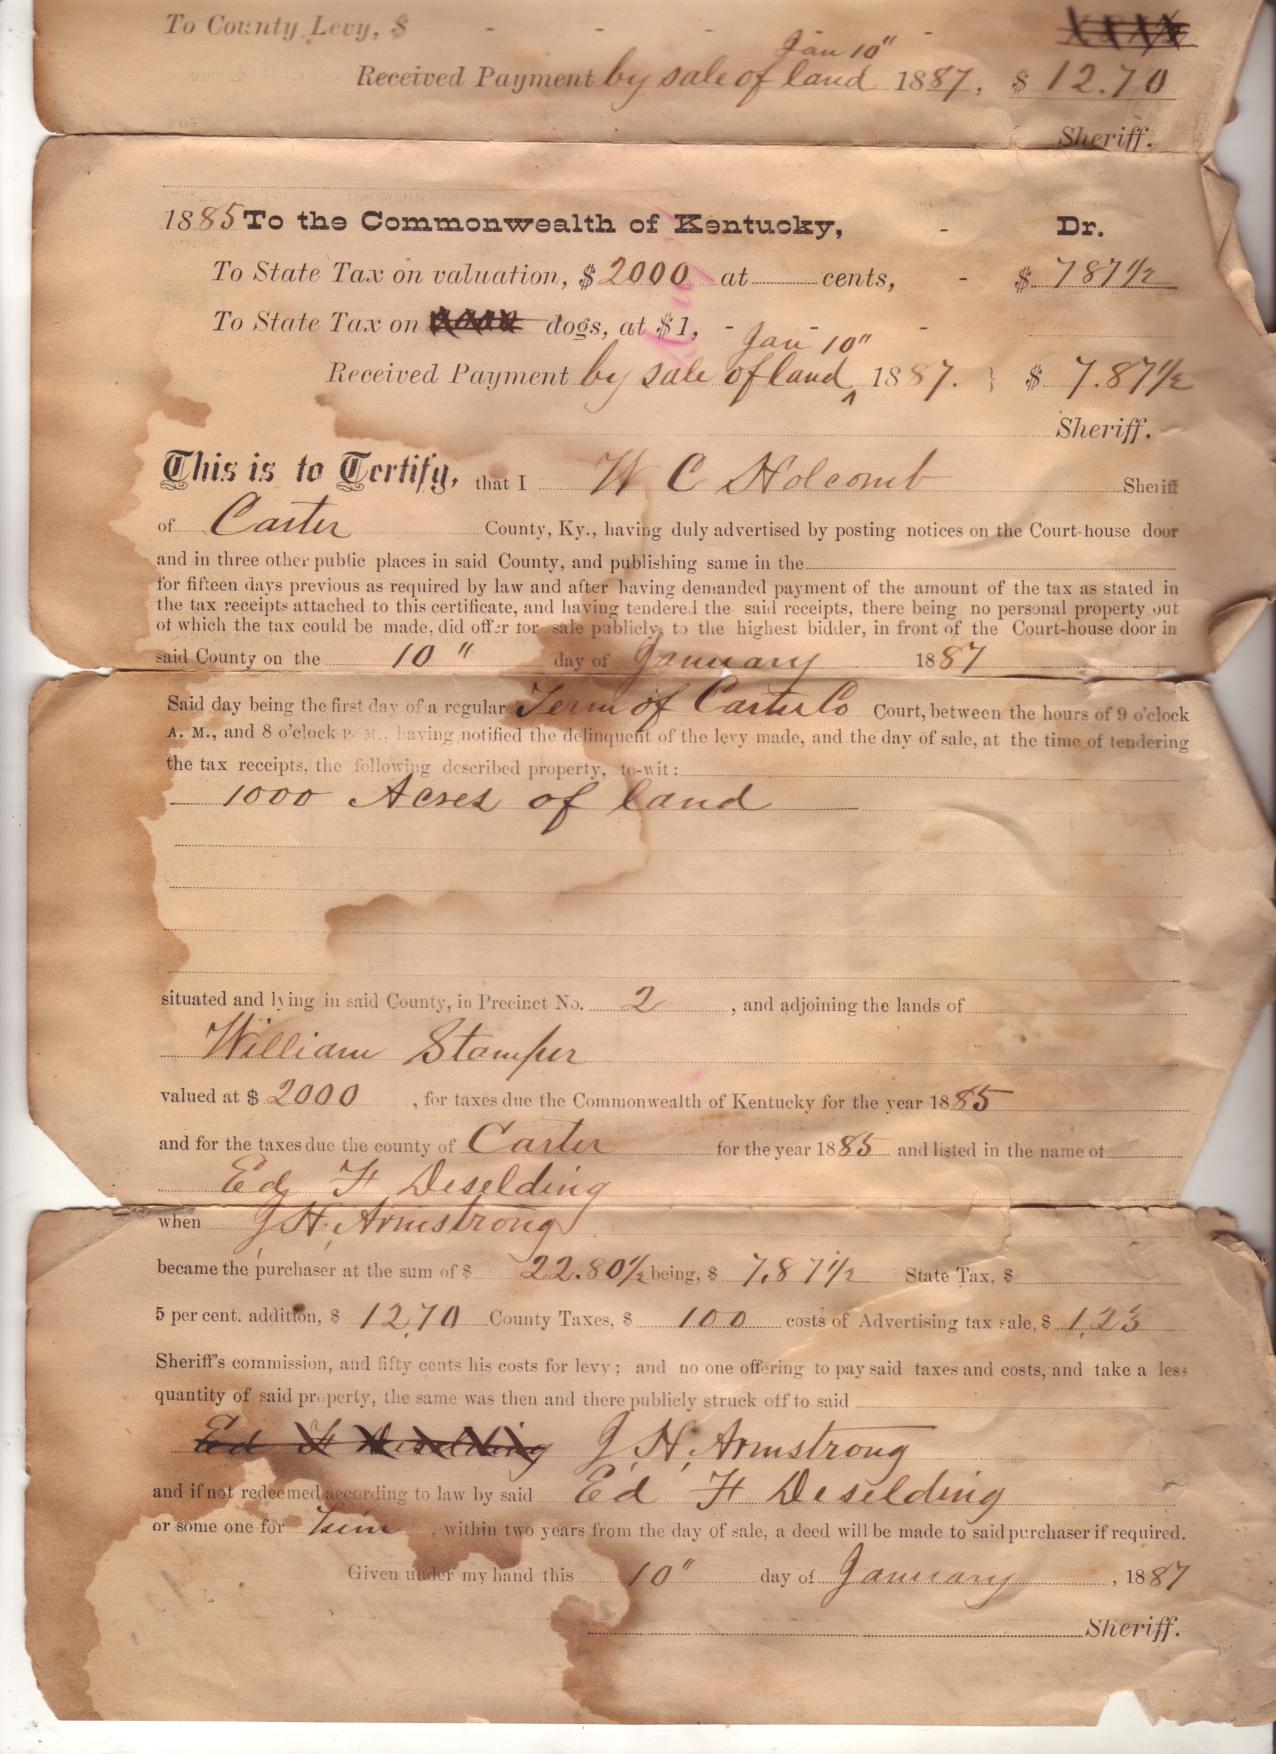 To County Levy, $ - - - -
Jan 10"
Received Payment by sale of land 1887, $ 12.70
Sheriff.
1885 To the Commonwealth of Kentucky, - Dr.
To State Tax on valuation, $ 2000 at cents, - $ 7 87 1/2
To State Tax on dogs, at $1, - - -
Jan 10"
Received Payment by sale of land ^ 1887. } $ 7.87 1/2
Sheriff.
This is to Certify, that I W C Holcomb Sheriff
of Carter County, Ky., having duly advertised by posting notices on the Court-house door
and in three other public places in said County, and publishing same in the
for fifteen days previous as required by law and after having demanded payment of the amount of the tax as stated in
the tax receipts attached to this certificate, and having tendered the said receipts, there being no personal property out
of which the tax could be made, did offer for sale publicly, to the highest bidder, in front of the Court-house door in
said County on the 10" day of January 1887
Said day being the first day of a regular Term of Carter Co Court, between the hours of 9 o'clock
A. M., and 3 o'clock P. M., having notified the delinquent of the levy made, and the day of sale, at the time of tendering
the tax receipts, the following described property, to-wit:
1000 Acres of land
situated and lying in said County, in Precinct No. 2, and adjoining the lands of
William Stamper
valued at $ 2000, for taxes due the Commonwealth of Kentucky for the year 1885
and for the taxes due the county of Carter for the year 1885 and listed in the name of
Ed F Deselding
when J. H. Armstrong
became the purchaser at the sum of $ 22.80 1/2 being, $ 7.87 1/2 State Tax, $
5 per cent. addition, $ 12.70 County Taxes, $ 100 costs of Advertising tax sale, $ 1.23
Sheriff's commission, and fifty cents his costs for levy; and no one offering to pay said taxes and costs, and take a less
quantity of said property, the same was then and there publicly struck off to said
Ed F Deselding J. H. Armstrong
and if not redeemed according to law by said Ed F Deselding
or some one for him, within two years from the day of sale, a deed will be made to said purchaser if required.
Given under my hand this 10" day of January, 1887
Sheriff.